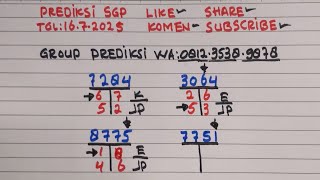 PREDIKSI SGP LIKE SHARE
TGL:16.7.2025 KOMEN SUBSCRIBE
GROUP PREDIKSI WA:0812.3538.9978
7284 3064
6 7 K 2 6 E
5 2 JP 5 3 JP
8775 7751
1 8 E
4 6 JP